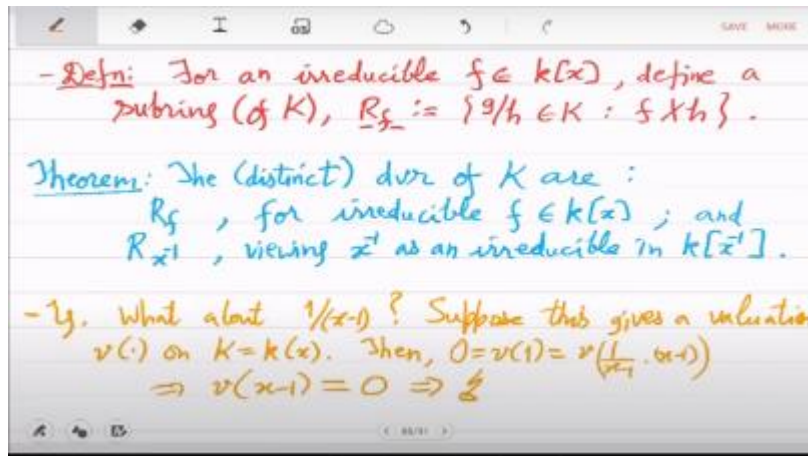 SAVE MORE
- Defn: For an irreducible f ∈ k[x], define a
subring (of K), R_f := {g/h ∈ K : f ∤ h}.
Theorem: The (distinct) dvr of K are :
R_f , for irreducible f ∈ k[x] ; and
R_{x^{-1}} , viewing x^{-1} as an irreducible in k[x^{-1}].
- Eg. What about 1/(x-1) ? Suppose this gives a valuatio
v(.) on K=k(x). Then, 0=v(1)= v(1/(x-1) . (x-1))
⇒ v(x-1) = 0 ⇒ ↯